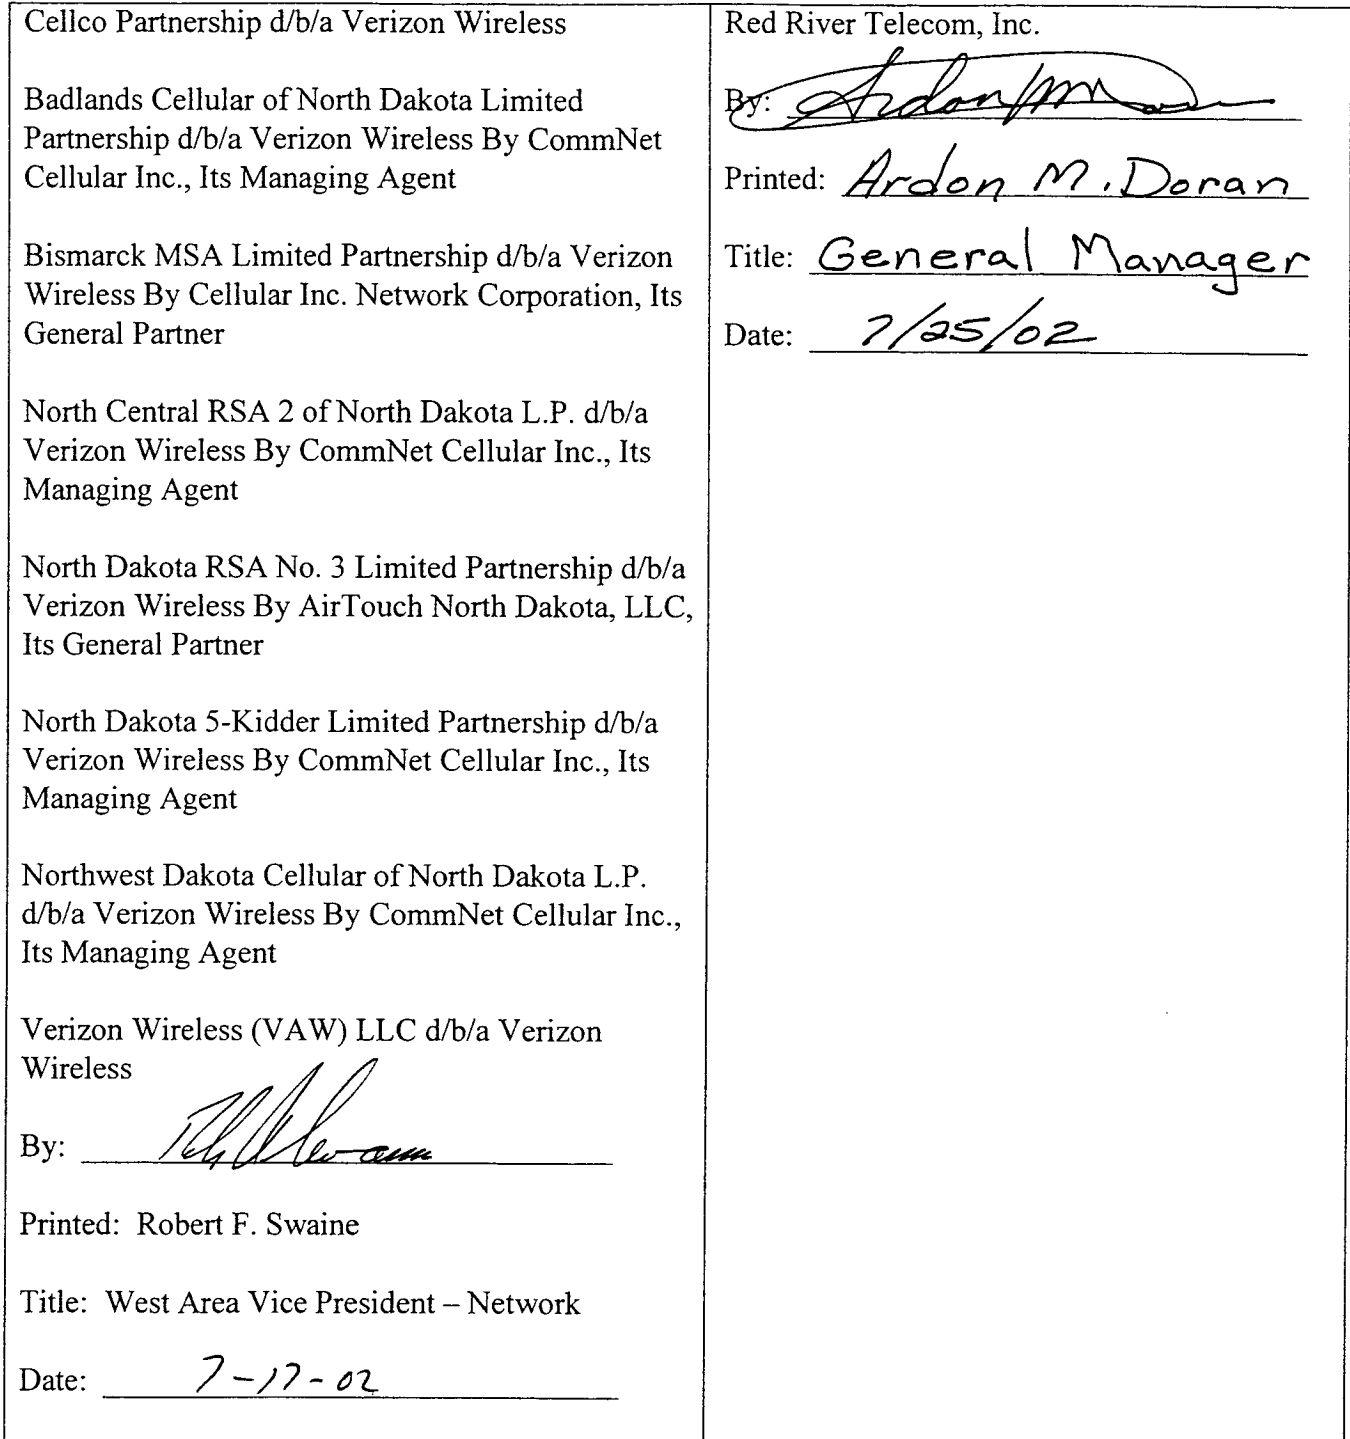 Cellco Partnership d/b/a Verizon Wireless
Badlands Cellular of North Dakota Limited
Partnership d/b/a Verizon Wireless By CommNet
Cellular Inc., Its Managing Agent
Bismarck MSA Limited Partnership d/b/a Verizon
Wireless By Cellular Inc. Network Corporation, Its
General Partner
North Central RSA 2 of North Dakota L.P. d/b/a
Verizon Wireless By CommNet Cellular Inc., Its
Managing Agent
North Dakota RSA No. 3 Limited Partnership d/b/a
Verizon Wireless By AirTouch North Dakota, LLC,
Its General Partner
North Dakota 5-Kidder Limited Partnership d/b/a
Verizon Wireless By CommNet Cellular Inc., Its
Managing Agent
Northwest Dakota Cellular of North Dakota L.P.
d/b/a Verizon Wireless By CommNet Cellular Inc.,
Its Managing Agent
Verizon Wireless (VAW) LLC d/b/a Verizon
Wireless
By:
Printed: Robert F. Swaine
Title: West Area Vice President – Network
Date: 7-17-02
Red River Telecom, Inc.
By: Ardon M
Printed: Ardon M. Doran
Title: General Manager
Date: 7/25/02